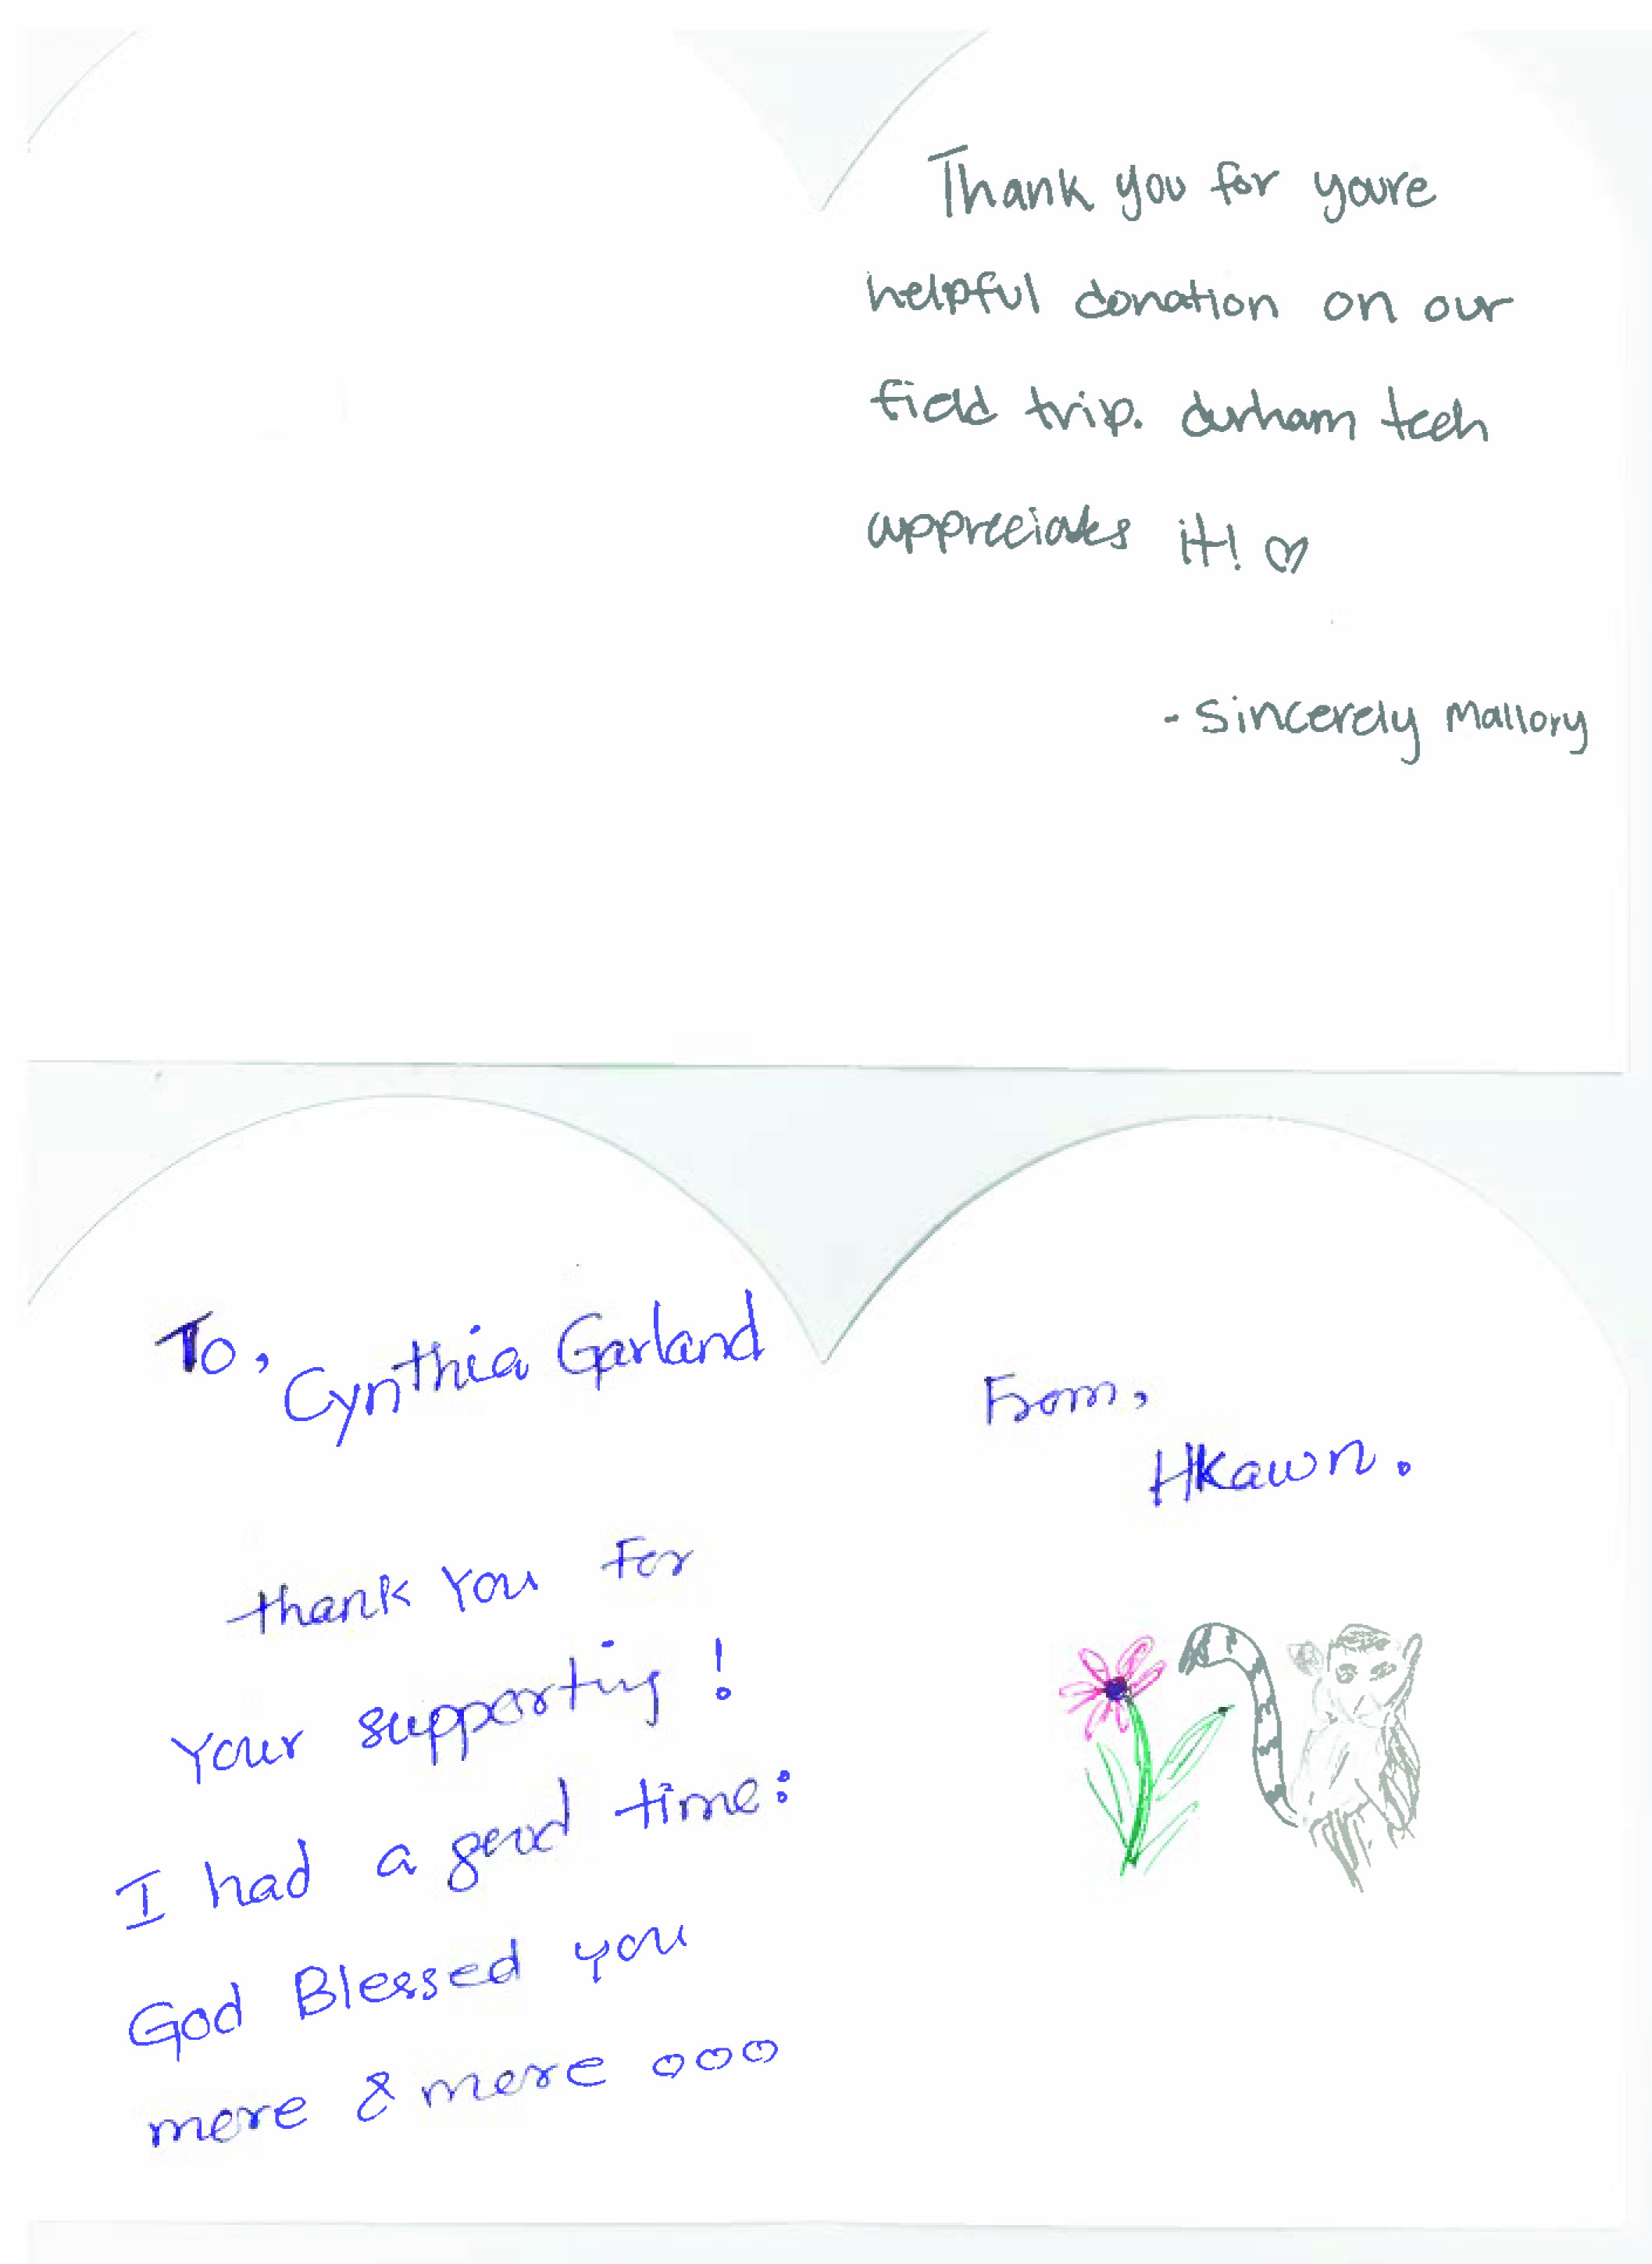 Thank you for youre
helpful donation on our
field trip. durham tech
appreciates it! ♡
- Sincerely Mallory
To,
Cynthia Garland
thank You For
Your supporting !
I had a good time:
God Blessed you
more & more ooo
From,
Hkawn.